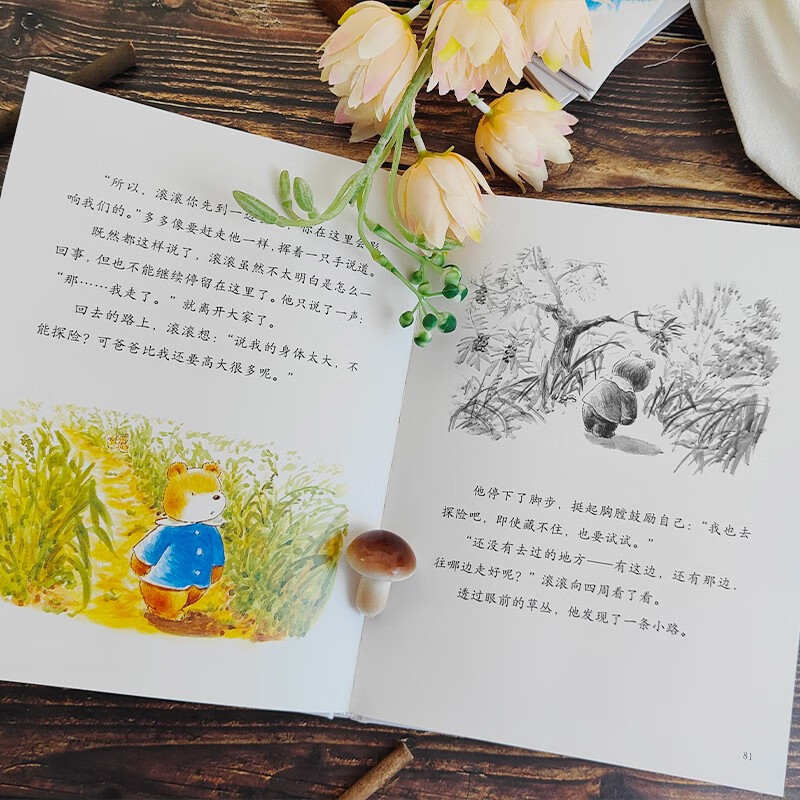 “所以，滚滚你先到一边 你在这里会影
响我们的。”多多像要赶走他一样，挥着一只手说道。
既然都这样说了，滚滚虽然不大明白是怎么一
回事，但也不能继续停留在这里了。他只说了一声：
“那……我走了。”就离开大家了。
回去的路上，滚滚想：“说我的身体太大，不
能探险？可爸爸比我还要高大很多呢。”
他停下了脚步，挺起胸膛鼓励自己：“我也去
探险吧，即使藏不住，也要试试。”
“还没有去过的地方——有这边，还有那边，
往哪边走好呢？”滚滚向四周看了看。
透过眼前的草丛，他发现了一条小路。
81